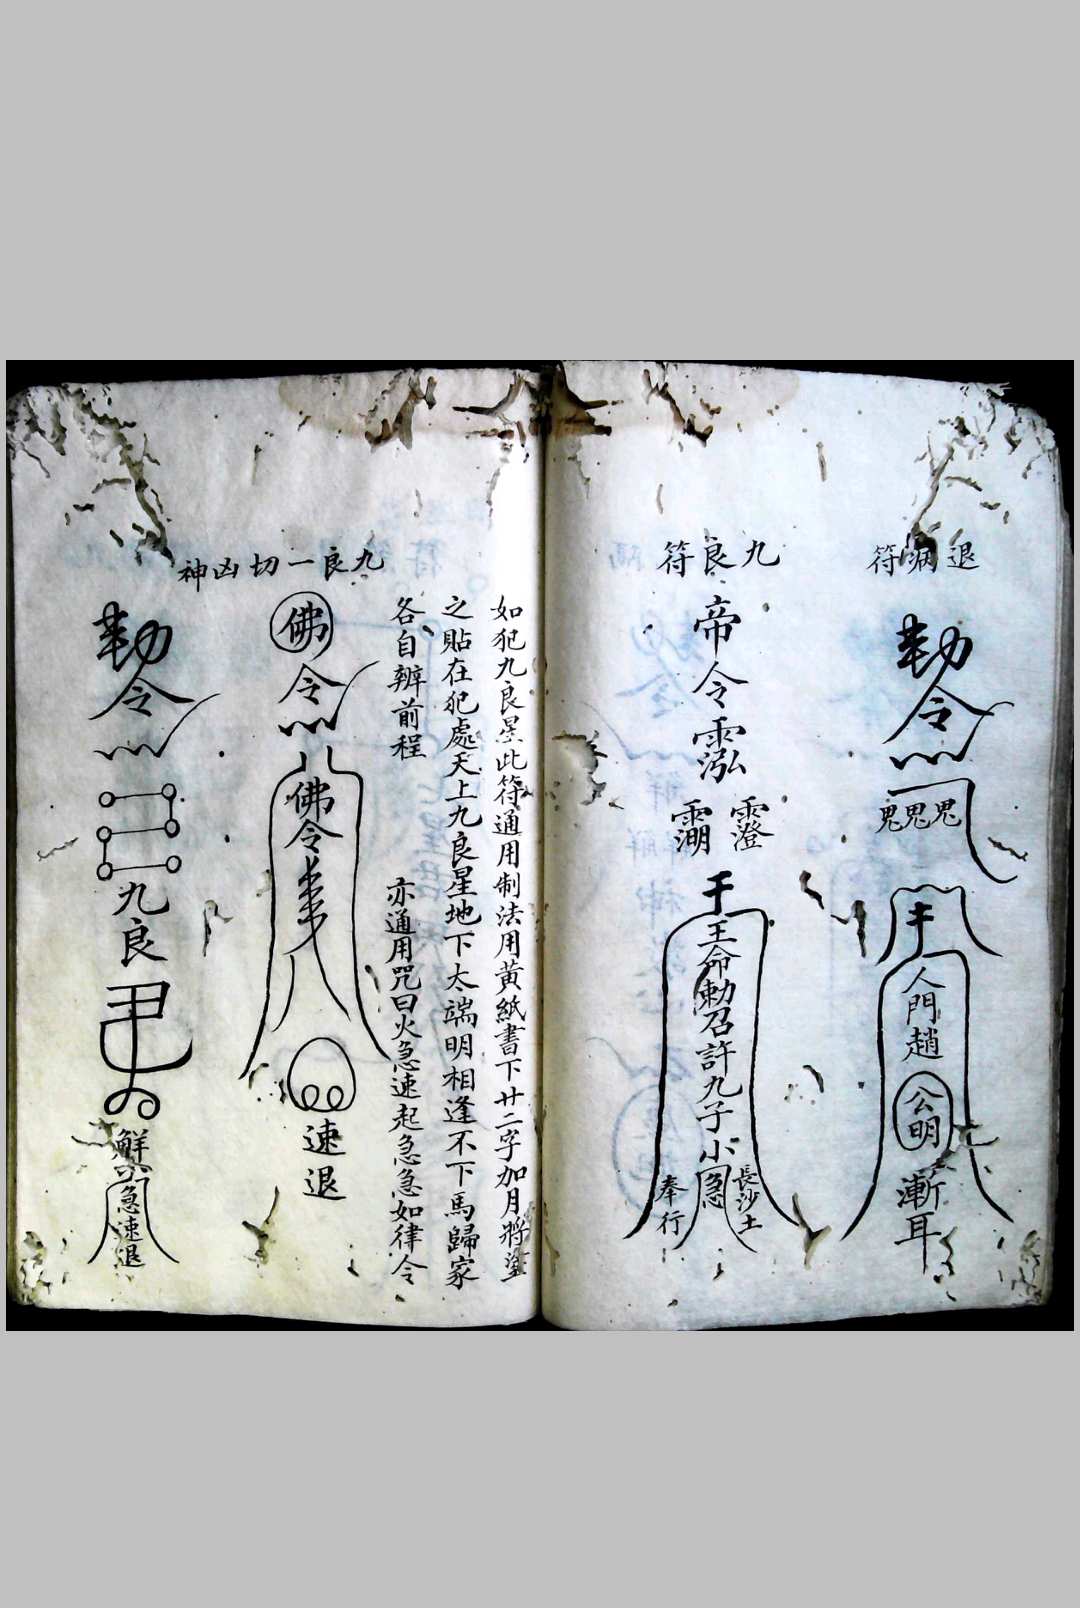 退病符
勅令
鬼鬼鬼
人門趙
公明
漸耳
九良符
帝令
王命勅召許九子小
急
長沙土
奉行
如犯九良星此符通用制法用黃紙書下廿二字加月將
之貼在犯處天上九良星地下太端明相逢不下馬歸家
各自辨前程
亦通用咒曰火急速起急急如律令
九良一切凶神
佛
令
佛令
速退
勅令
九良
急速退